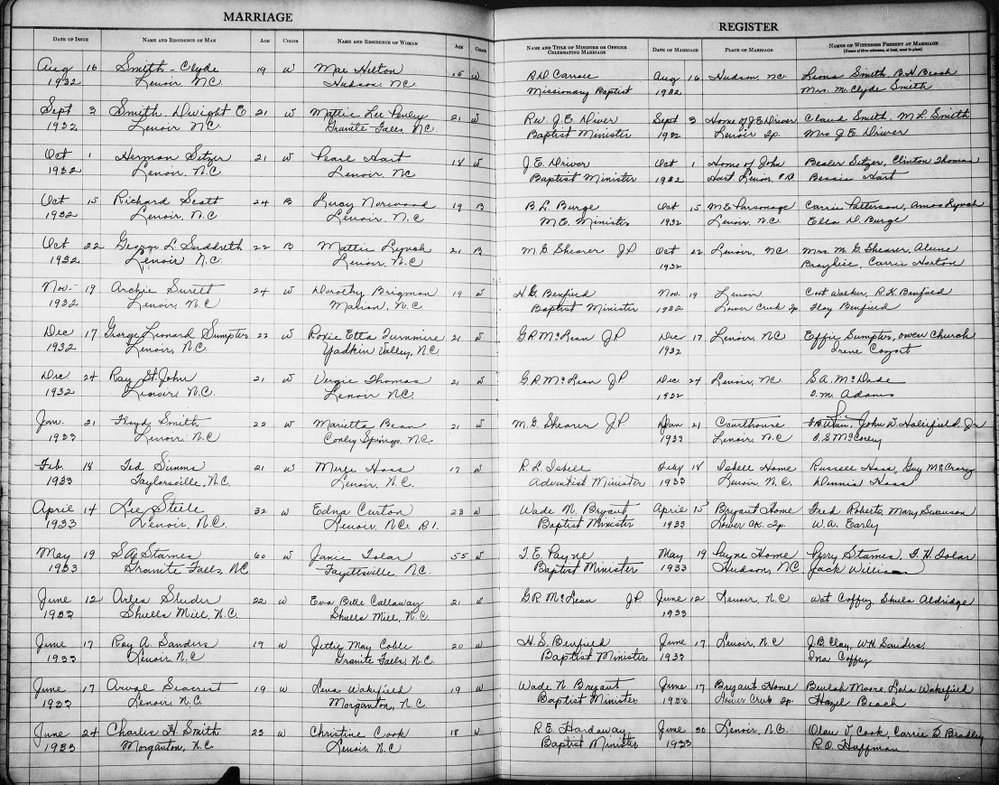 MARRIAGE
DATE OF ISSUE NAME AND RESIDENCE OF MAN AGE COLOR NAME AND RESIDENCE OF WOMAN AGE COLOR
Aug 16 Smith - Clyde 19 W Mae Hilton W
1932 Lenoir NC Hudson, N.C.
Sept 3 Smith Dwight E 21 W Mattie Lee 21 W
1932 Lenoir NC. Granite Falls, NC
Oct 1 Herman Setzer 21 W Pearl Hart 18 W
1932 Lenoir, N.C Lenoir, NC
Oct 15 Richard Scott 24 B Lucy Norwood 19 B
1932 Lenoir, N.C. Lenoir, N.C
Oct 22 George L. Suddreth 22 B Mattie Lynch 21 B
1932 Lenoir N.C. Lenoir, N.C
Nov. 19 Archie 24 W Dorothy Brigman 19 W
1932 Lenoir, N.C Marion, N.C
Dec 17 George Leonard Sumpter 22 W Rosie Etta Turnmire 21 W
1932 Lenoir, N.C. Yadkin Valley, N.C
Dec 24 Ray St. John 21 W Vergie Thomas 21 W
1932 Lenoir N.C. Lenoir N.C.
Jan. 21 Floyd Smith 22 W Marietta Bean 21 W
1933 Lenoir N.C Conley Springs, N.C.
Feb. 18 Ted Simms 21 W Merle Hass 17 W
1933 Taylorsville, N.C. Lenoir, N.C.
April 14 Lee Steele 32 W Edna Curton 23 W
1933 Lenoir, N.C. Lenoir N.C. R1.
May 19 S.A. Starnes 60 W Janie Tolar 55 W
1933 Granite Falls, NC Fayettsville, N.C.
June 12 Arlea Sluder 22 W Eva Belle Callaway 21 W
1933 Shulls Mill, N.C. Shulls Mill, N.C.
June 17 Ray A. Sanders 19 W May Coble 20 W
1933 Lenoir N.C Granite Falls, N.C.
June 17 Arval Seacrest 19 W Lena Wakefield 19 W
1933 Lenoir N.C. Morganton, N.C.
June 24 Charles H Smith 23 W Christine Cook 18 W
1933 Morganton, N.C. Lenoir, N.C
REGISTER
NAME AND TITLE OF MINISTER OR OFFICER CELEBRATING MARRIAGE DATE OF MARRIAGE PLACE OF MARRIAGE NAMES OF WITNESSES PRESENT AT MARRIAGE
(Names of three witnesses, at least, must be given)
R.D. Carroll Aug 16 Hudson, N.C. Leona Smith, B.H. Beach
Missionary Baptist 1932 Mrs. M. Clyde Smith
Rev. J.E. Driver Sept 3 Home of J.E. Driver Claud Smith, M.L. Smith
Baptist Minister 1932 Lenoir Tp. Mrs. J E Driver
J.E. Driver Oct 1 Home of John Setzer, Clinton Thomas
Baptist Minister 1932 Hart Lenoir Bessie Hart
B.L. Burge Oct 15 M.E. Parsonage Carrie Patterson, Amos Lynch
M.E. Minister 1932 Lenoir, N.C. Ella D. Burge
M G Shearer J.P. Oct 22 Lenoir, NC. Mrs. M. G. Shearer,
1932 Carrie Horton
H.G. Benfield Nov. 19 Lenoir Walker, R.K. Benfield
Baptist Minister 1932 Lower Creek Tp Floy Benfield
G.R. McLean JP Dec 17 Lenoir, NC Effie Sumpter, Owen Church
1932 Irene
G.R. McLean JP Dec 24 Lenoir, NC S.A. McDade
1932 O.M. Adams
M. G. Shearer JP Jan 21 Courthouse John D. Holifield, Jr
1933 Lenoir, N.C O.S. McCorley
R.L. Isbell Feby 18 Isbell Home Russell Hass, Guy McCrary
Adventist Minister 1933 Lenoir N.C. Dennis Hass
Wade N. Bryant April 15 Bryant Home Fred Roberts, Mary Swanson
Baptist Minister 1933 Lower Ck. Tp. W.A. Early
T.E. Payne May 19 Payne Home Perry Starnes, F.H. Tolar
Baptist Minister 1933 Hudson, NC Jack Williams
G.R. McLean JP June 12 Lenoir, N.C Wat Coffey, Shula Aldridge
1933
H.S. Benfield June 17 Lenoir, N.C J.B. Clay, W.H. Sanders,
Baptist Minister 1933 Ina Coffey
Wade N. Bryant June 17 Bryant Home Beulah Moore, Lola Wakefield
Baptist Minister 1933 Lower Creek Tp. Hazel Beach
R.E. Hardaway June 30 Lenoir, N.C. Olan T. Cook, Carrie D. Bradley
Baptist Minister 1933 R.O. Huffman